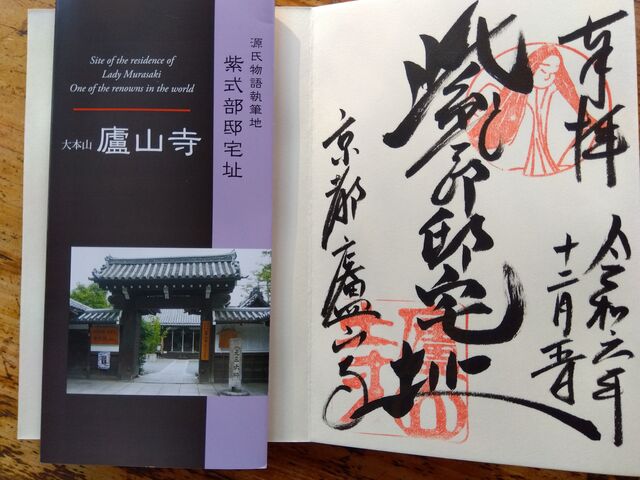 Site of the residence of
Lady Murasaki
One of the renowns in the world
大本山 廬山寺
源氏物語執筆地
紫式部邸宅址
奉拝
令和六年
十二月
紫式部邸宅址
京都廬山寺